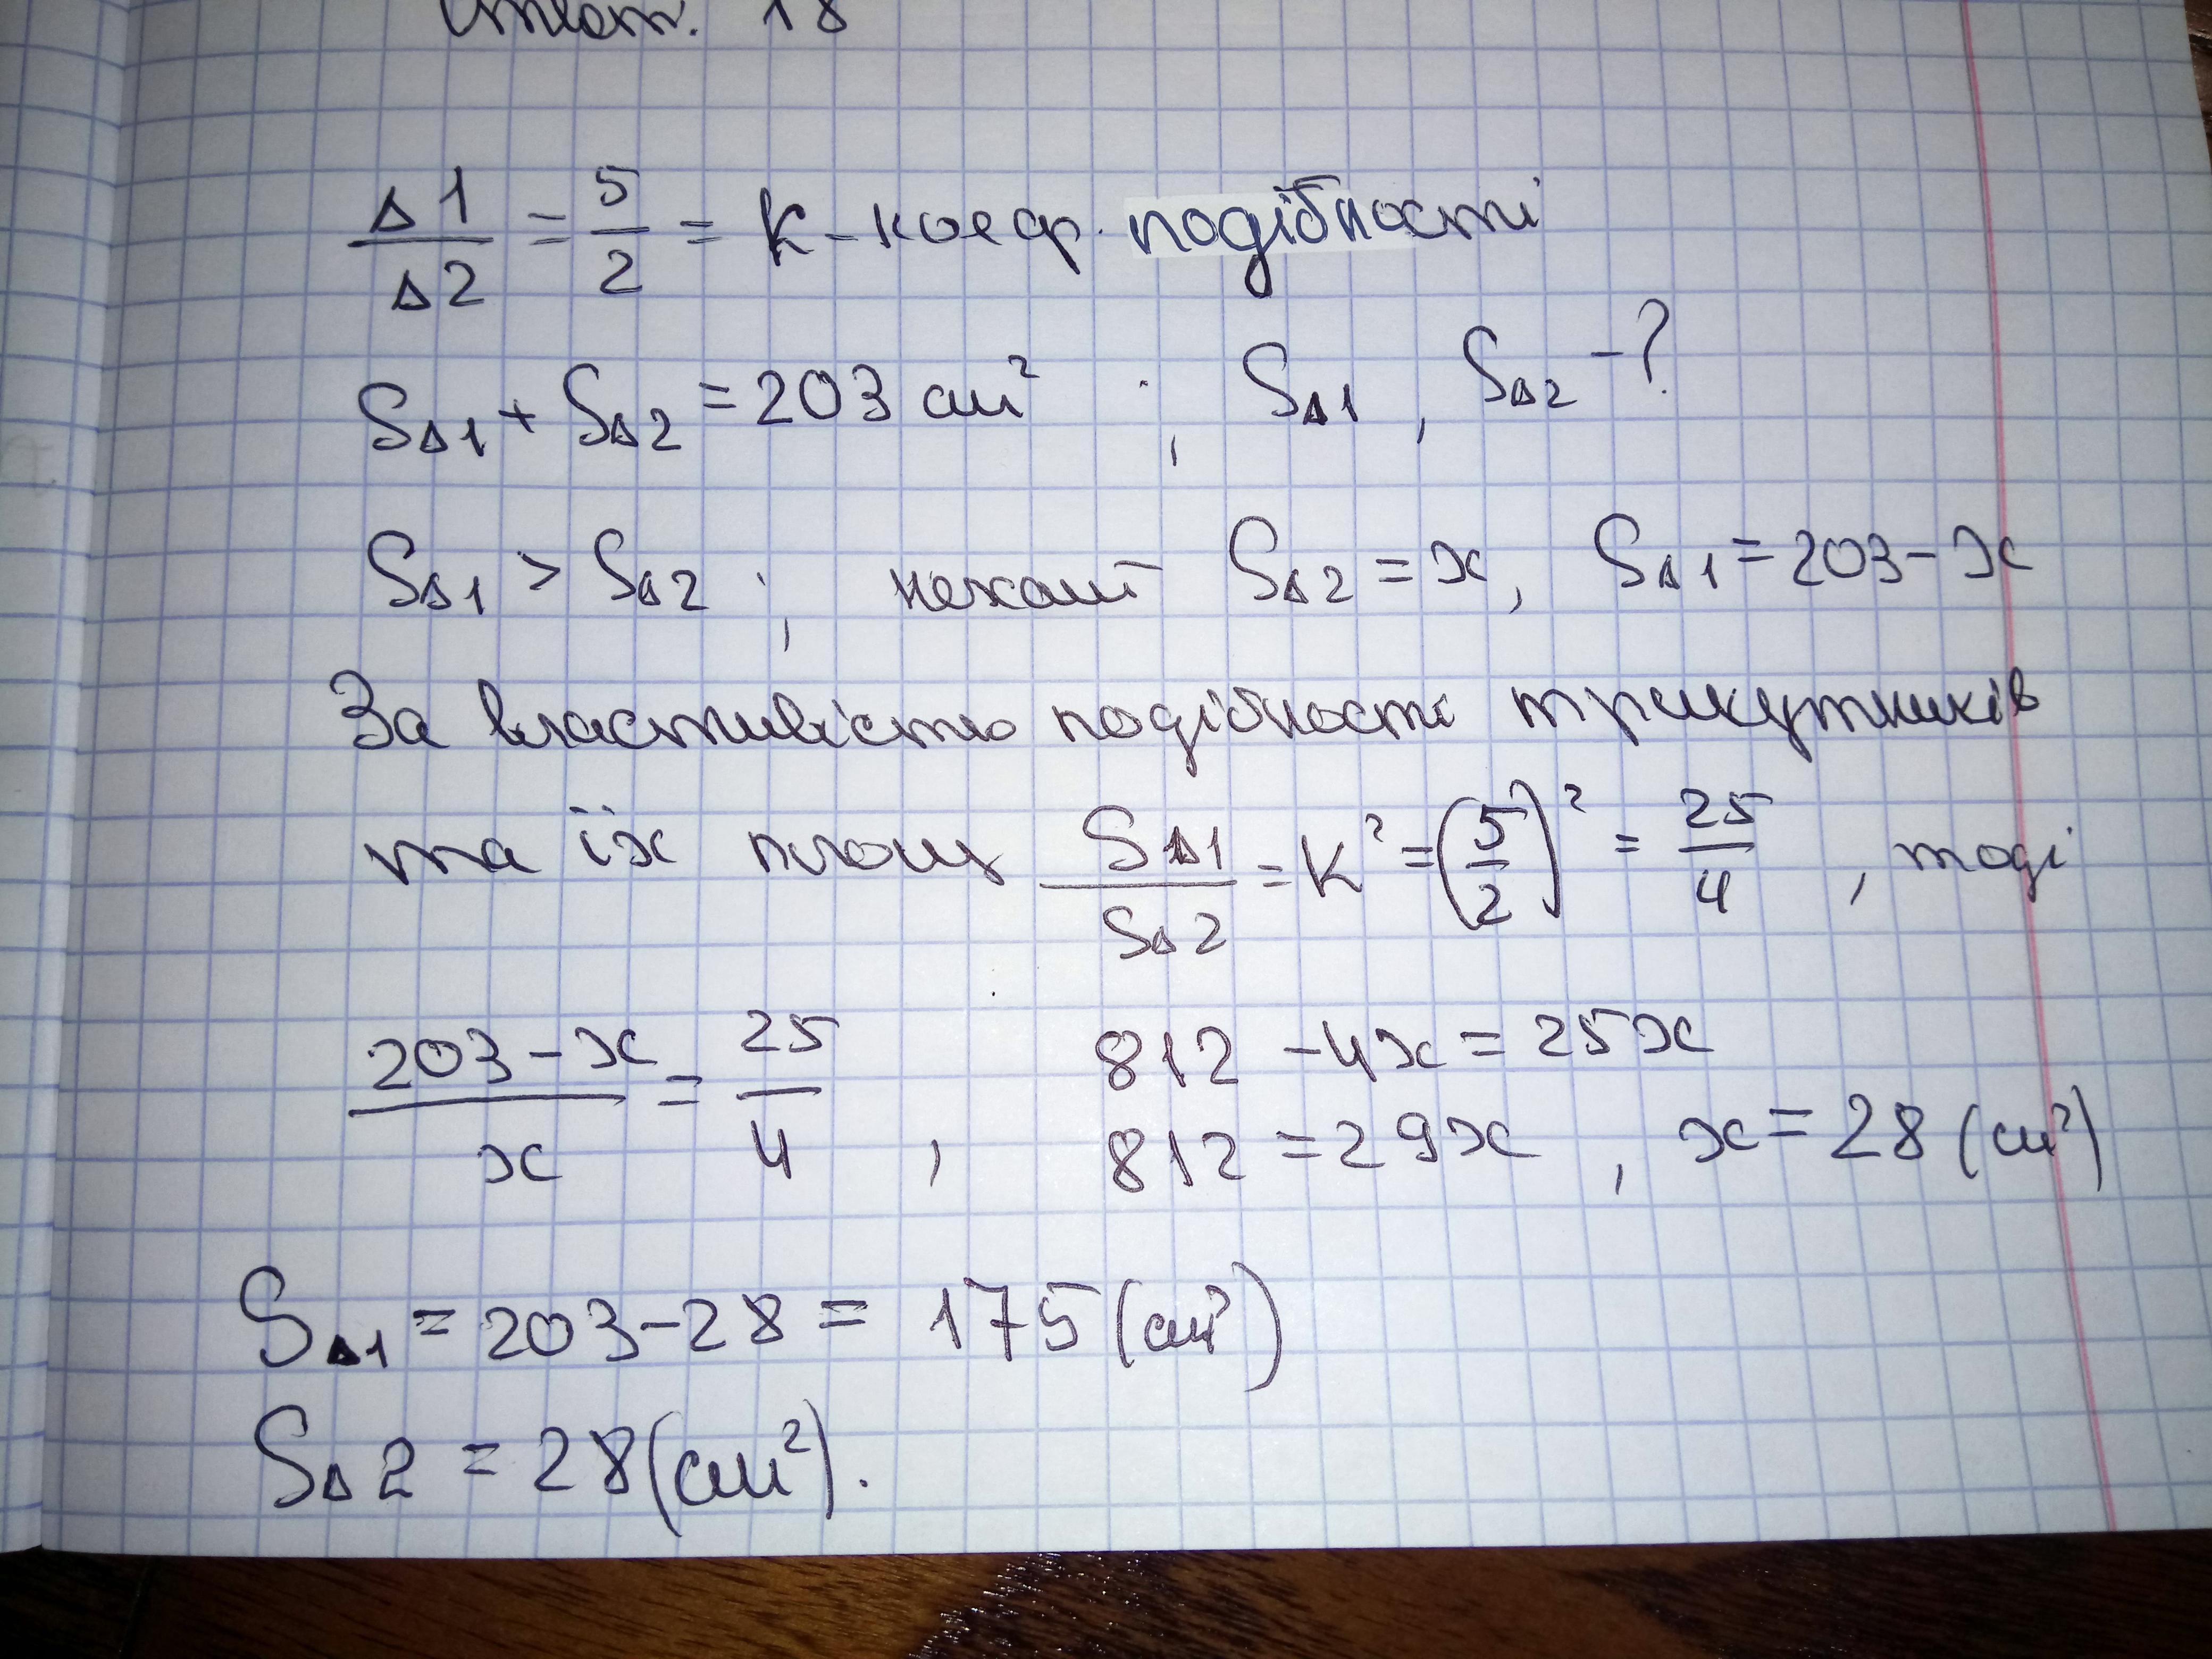 18
Δ1/Δ2 = 5/2 = K - коеф. подібності
SΔ1 + SΔ2 = 203 см² ; SΔ1 , SΔ2 - ?
SΔ1 > SΔ2 ; нехай SΔ2 = x, SΔ1 = 203 - x
За властивістю подібності трикутників
та їх площ SΔ1/SΔ2 = K² = (5/2)² = 25/4 , тоді
(203 - x)/x = 25/4 , 812 - 4x = 25x
812 = 29x , x = 28 (см²)
SΔ1 = 203 - 28 = 175 (см²)
SΔ2 = 28 (см²).